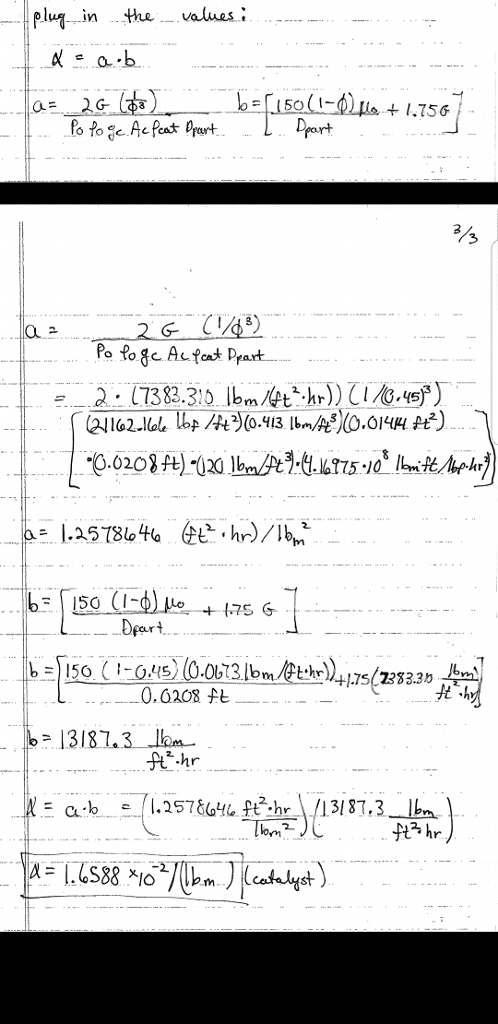 plug in the values:
α = a·b
a = 2G (1/ϕ³) / P₀ ρ₀ gc Ac ρcat Dpart    b = [150(1-ϕ) μ₀ / Dpart + 1.75G]
3/3
a = 2G (1/ϕ³) / P₀ ρ₀ gc Ac ρcat Dpart
= 2·(7383.310 lbm/(ft²·hr))(1/(0.45)³)
[(21162.166 lbf/ft²)(0.413 lbm/ft³)(0.01414 ft²)
·(0.0208 ft)·(120 lbm/ft³)·(4.16975·10⁸ lbm·ft/lbf·hr²)]
a = 1.2578646 (ft²·hr)/lbm²
b = [150 (1-ϕ) μ₀ / Dpart + 1.75 G]
b = [150 (1-0.45)(0.0673 lbm/(ft·hr)) / 0.0208 ft + 1.75 (7383.310 lbm / ft²·hr)]
b = 13187.3 lbm / ft²·hr
α = a·b = (1.2578646 ft²·hr / lbm²)(13187.3 lbm / ft² hr)
α = 1.6588 ×10⁻²/(lbm) (catalyst)